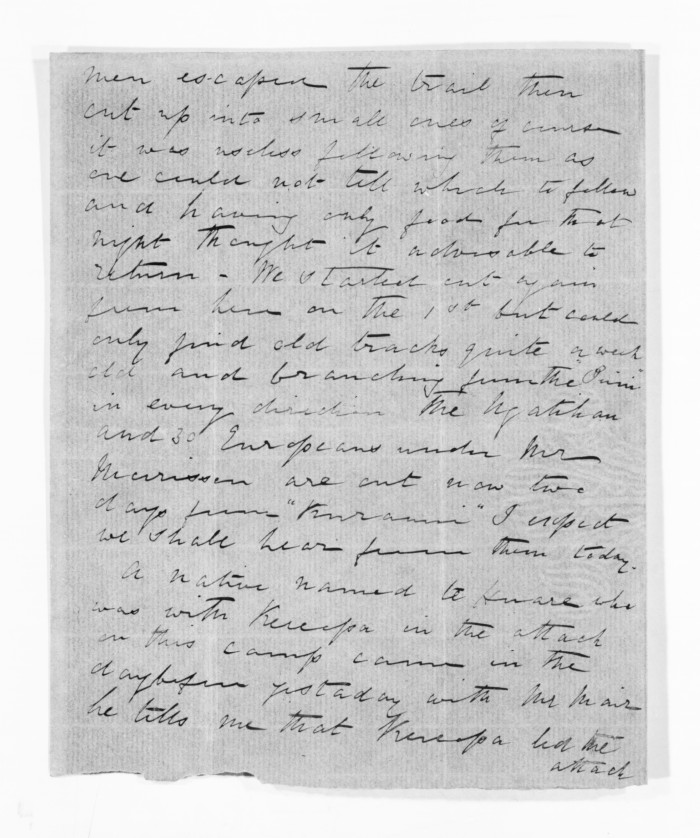 men escaped the trail then
cut up into small ones of course
it was useless following them as
one could not tell which to follow
and having only food for that
night thought it advisable to
return - We started out again
from here on the 1st but could
only find old tracks quite a week
old and branching from the
in every direction the Ngatihau
and 30 Europeans under Mr
Morrissen are out now two
days from I expect
we shall hear from them today.
A native named te Huare who
was with Kereopa in the attack
on this camp came in the
daybefore yestaday with Mr Mair
he tells me that Kereopa led the
attack